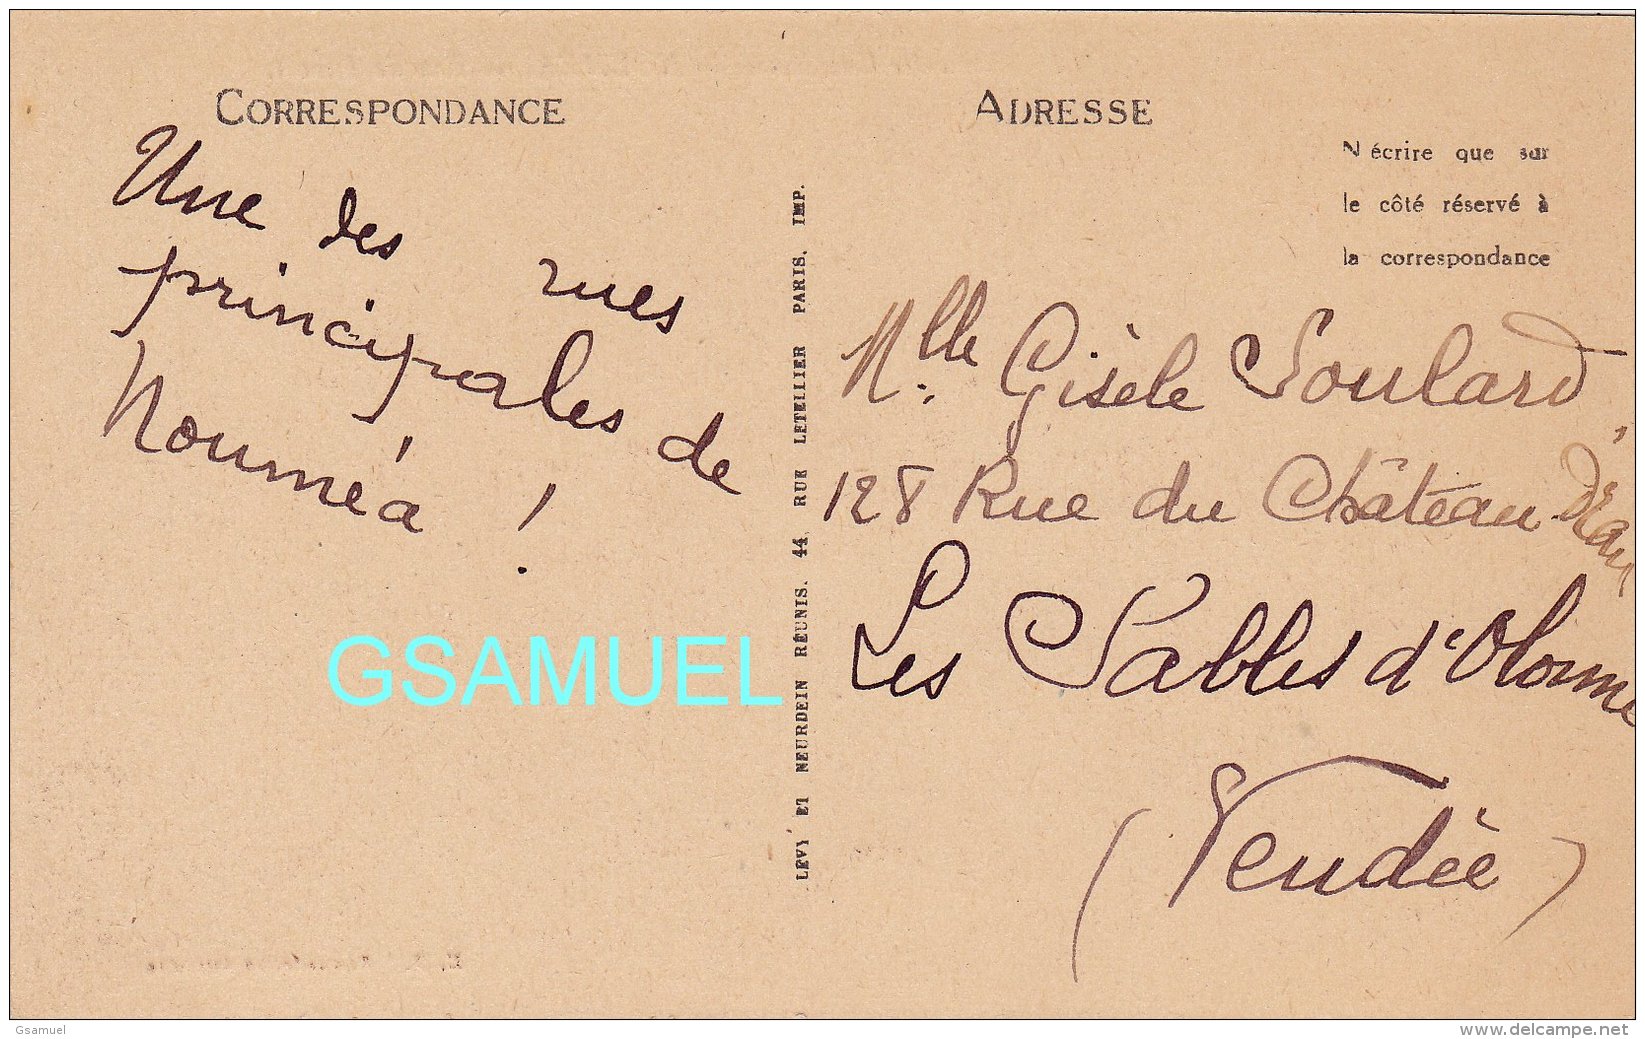 CORRESPONDANCE
Une des rues
principales de
Nouméa !
GSAMUEL
LÉVY ET NEURDEIN RÉUNIS. 44, RUE LETELLIER PARIS. IMP.
ADRESSE
N'écrire que sur
le côté réservé à
la correspondance
Mlle Gisèle Soulard,
128 Rue du Château d'Eau
Les Sables d'Olonne
(Vendée)
Gsamuel
www.delcampe.net